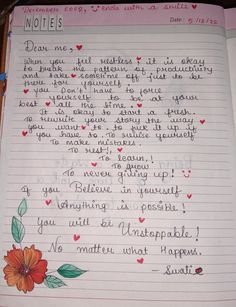 December 2022, Ends with a smile
NOTES
Date: 5/12/22
Dear me,
When you feel restless it is okay
to break the pattern of productivity
and take sometime off just to be
there for yourself.
You Don't have to force
yourself to be at your
best all the time.
It is okay to start a fresh.
To rewrite your story the way
you want to. to fuck it up if
you have to. To revive yourself
To make mistakes.
To rest,
To learn!
To Grow
To never giving up!
If you Believe in yourself
Anything is possible!
You will be Unstoppable!
No matter what Happens.
- Swati